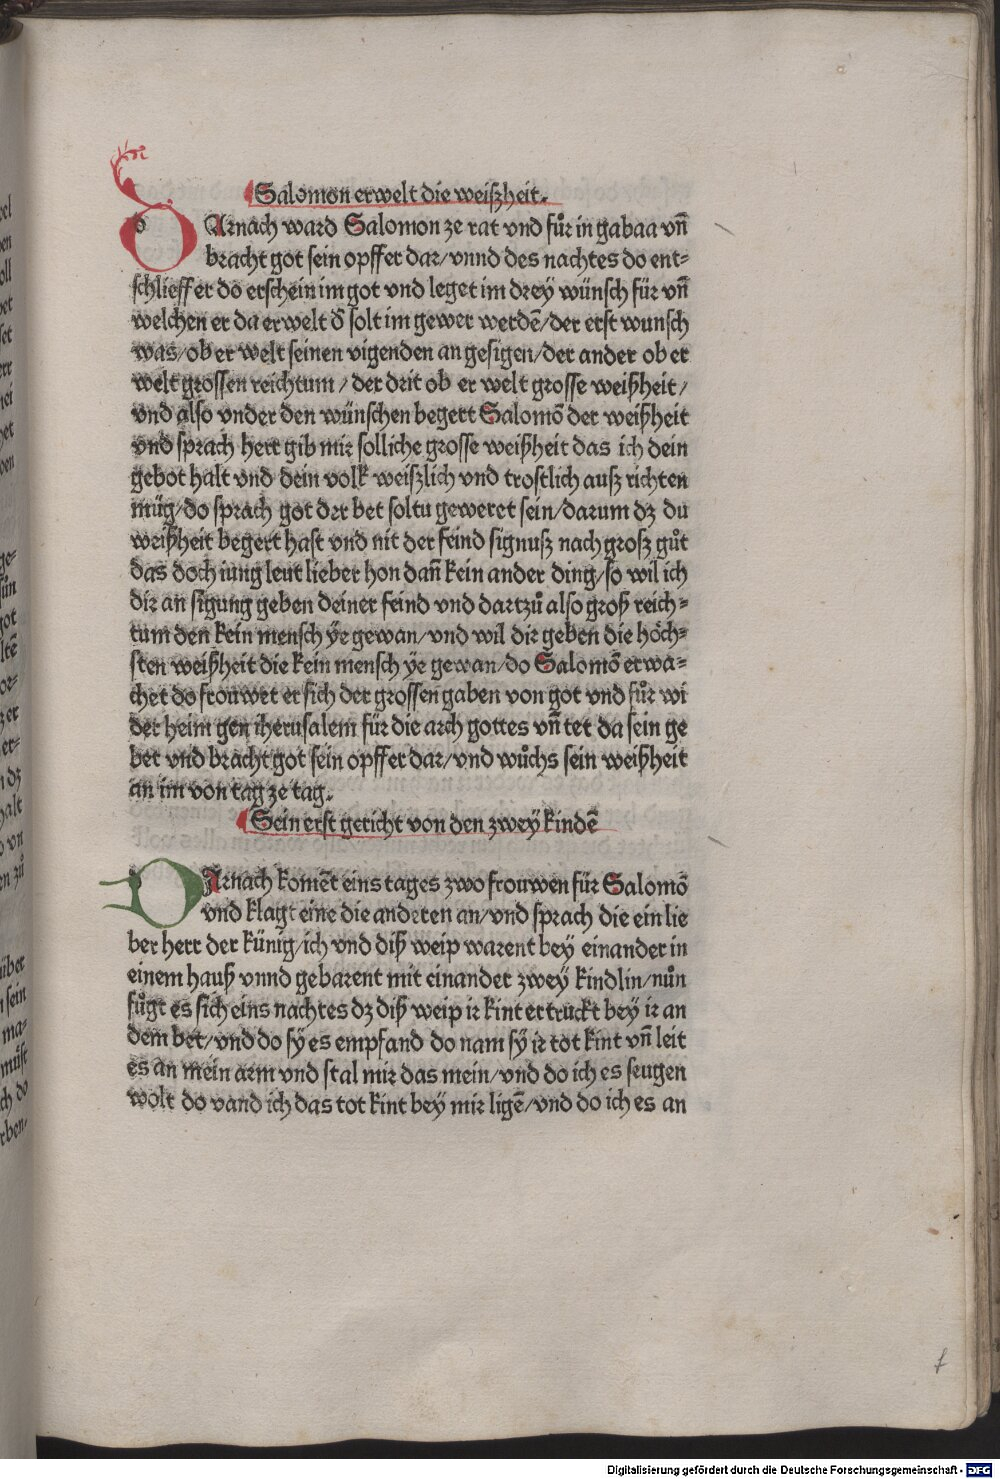 Salomon erwelt die weißheit.
DArnach ward Salomon ze rat vnd fůr in gabaa vñ
bracht got sein opffer dar/vnnd des nachtes do ent=
schlieff er do erschein im got vnd leget im drey wünsch für vñ
welchen er da erwelt d̄ solt im gewer werdē/der erst wunsch
was/ob er welt seinen vigenden an gesigen/der ander ob er
welt grossen reichtum/der drit ob er welt grosse weißheit/
vnd also vnder den wünschen begert Salomō der weißheit
vnd sprach herr gib mir solliche grosse weißheit das ich dein
gebot halt vnd dein volk weißlich vnd trostlich auß richten
müg/do sprach got der bet soltu geweret sein/darum dz du
weißheit begert hast vnd nit der feind signuß nach groß gůt
das doch iung leut lieber hon dañ kein ander ding/so wil ich
dir an sigung geben deiner feind vnd dartzů also groß reich=
tum den kein mensch ÿe gewan/vnd wil dir geben die höch=
sten weißheit die kein mensch ÿe gewan/do Salomō erwa=
chet do frouwet er sich der grossen gaben von got vnd fůr wi
der heim gen iherusalem für die arch gottes vñ tet da sein ge
bet vnd bracht got sein opffer dar/vnd wůchs sein weißheit
an im von tag ze tag.
Sein erst gericht von den zweÿ kindē
DArnach komēt eins tages zwo frouwen für Salomō
vnd klagt eine die anderen an/vnd sprach die ein lie
ber herr der künig/ich vnd diß weip warent beÿ einander in
einem hauß vnnd gebarent mit einander zweÿ kindlin/nůn
fůgt es sich eins nachtes dz diß weip ir kint ertruckt beÿ ir an
dem bet/vnd do sÿ es empfand do nam sÿ ir tot kint vñ leit
es an mein arm vnd stal mir das mein/vnd do ich es seugen
wolt do vand ich das tot kint beÿ mir ligē/vnd do ich es an
Digitalisierung gefördert durch die Deutsche Forschungsgemeinschaft - DFG